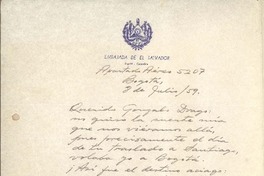 EMBAJADA DE EL SALVADOR
Apartado Aéreo 5207
Bogotá,
8 de Julio/59.
Querido Gonzalo Drago:
no quiso la suerte mía
que nos viéramos allá,
pues precisamente el día
de tu traslado a Santiago,
volaba yo a Bogotá.
¡Así fue el destino aciago!